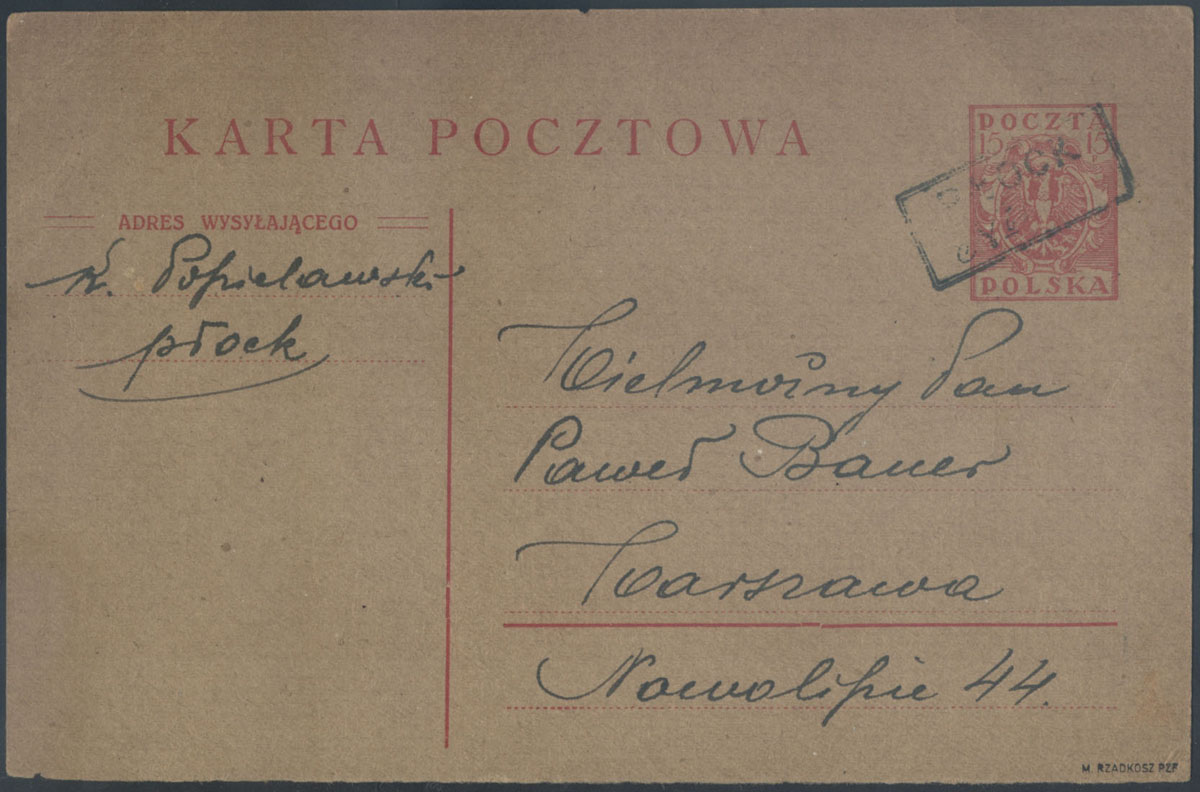 KARTA POCZTOWA
POCZTA
15 15
POLSKA
PŁOCK
ADRES WYSYŁAJĄCEGO
K. Popielawski
płock
Wielmożny Pan
Paweł Bauer
Warszawa
Nowolipie 44.
M. RZADKOSZ PZF